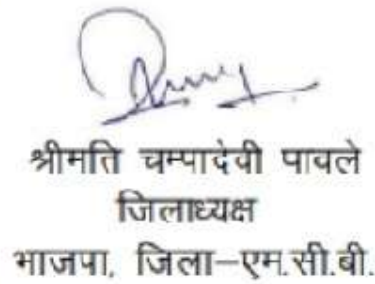 श्रीमति चम्पादेवी पावले
जिलाध्यक्ष
भाजपा, जिला–एम.सी.बी.